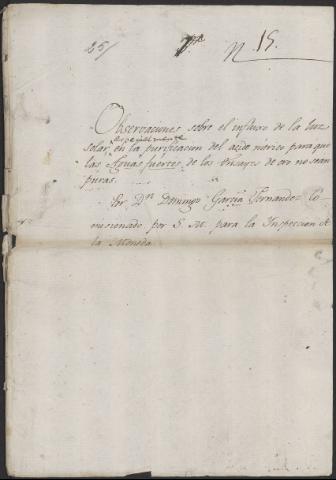 25/ N 15.
Observaciones sobre el influxo de la luz
solar, en la purificacion del acido nitrico para que
las Aguas fuertes de los Ensayes de oro no sean
puras.
Por Dn. Domingo Garcia Fernandez Co-
misionado por S. M. para la Inspeccion de
la Moneda